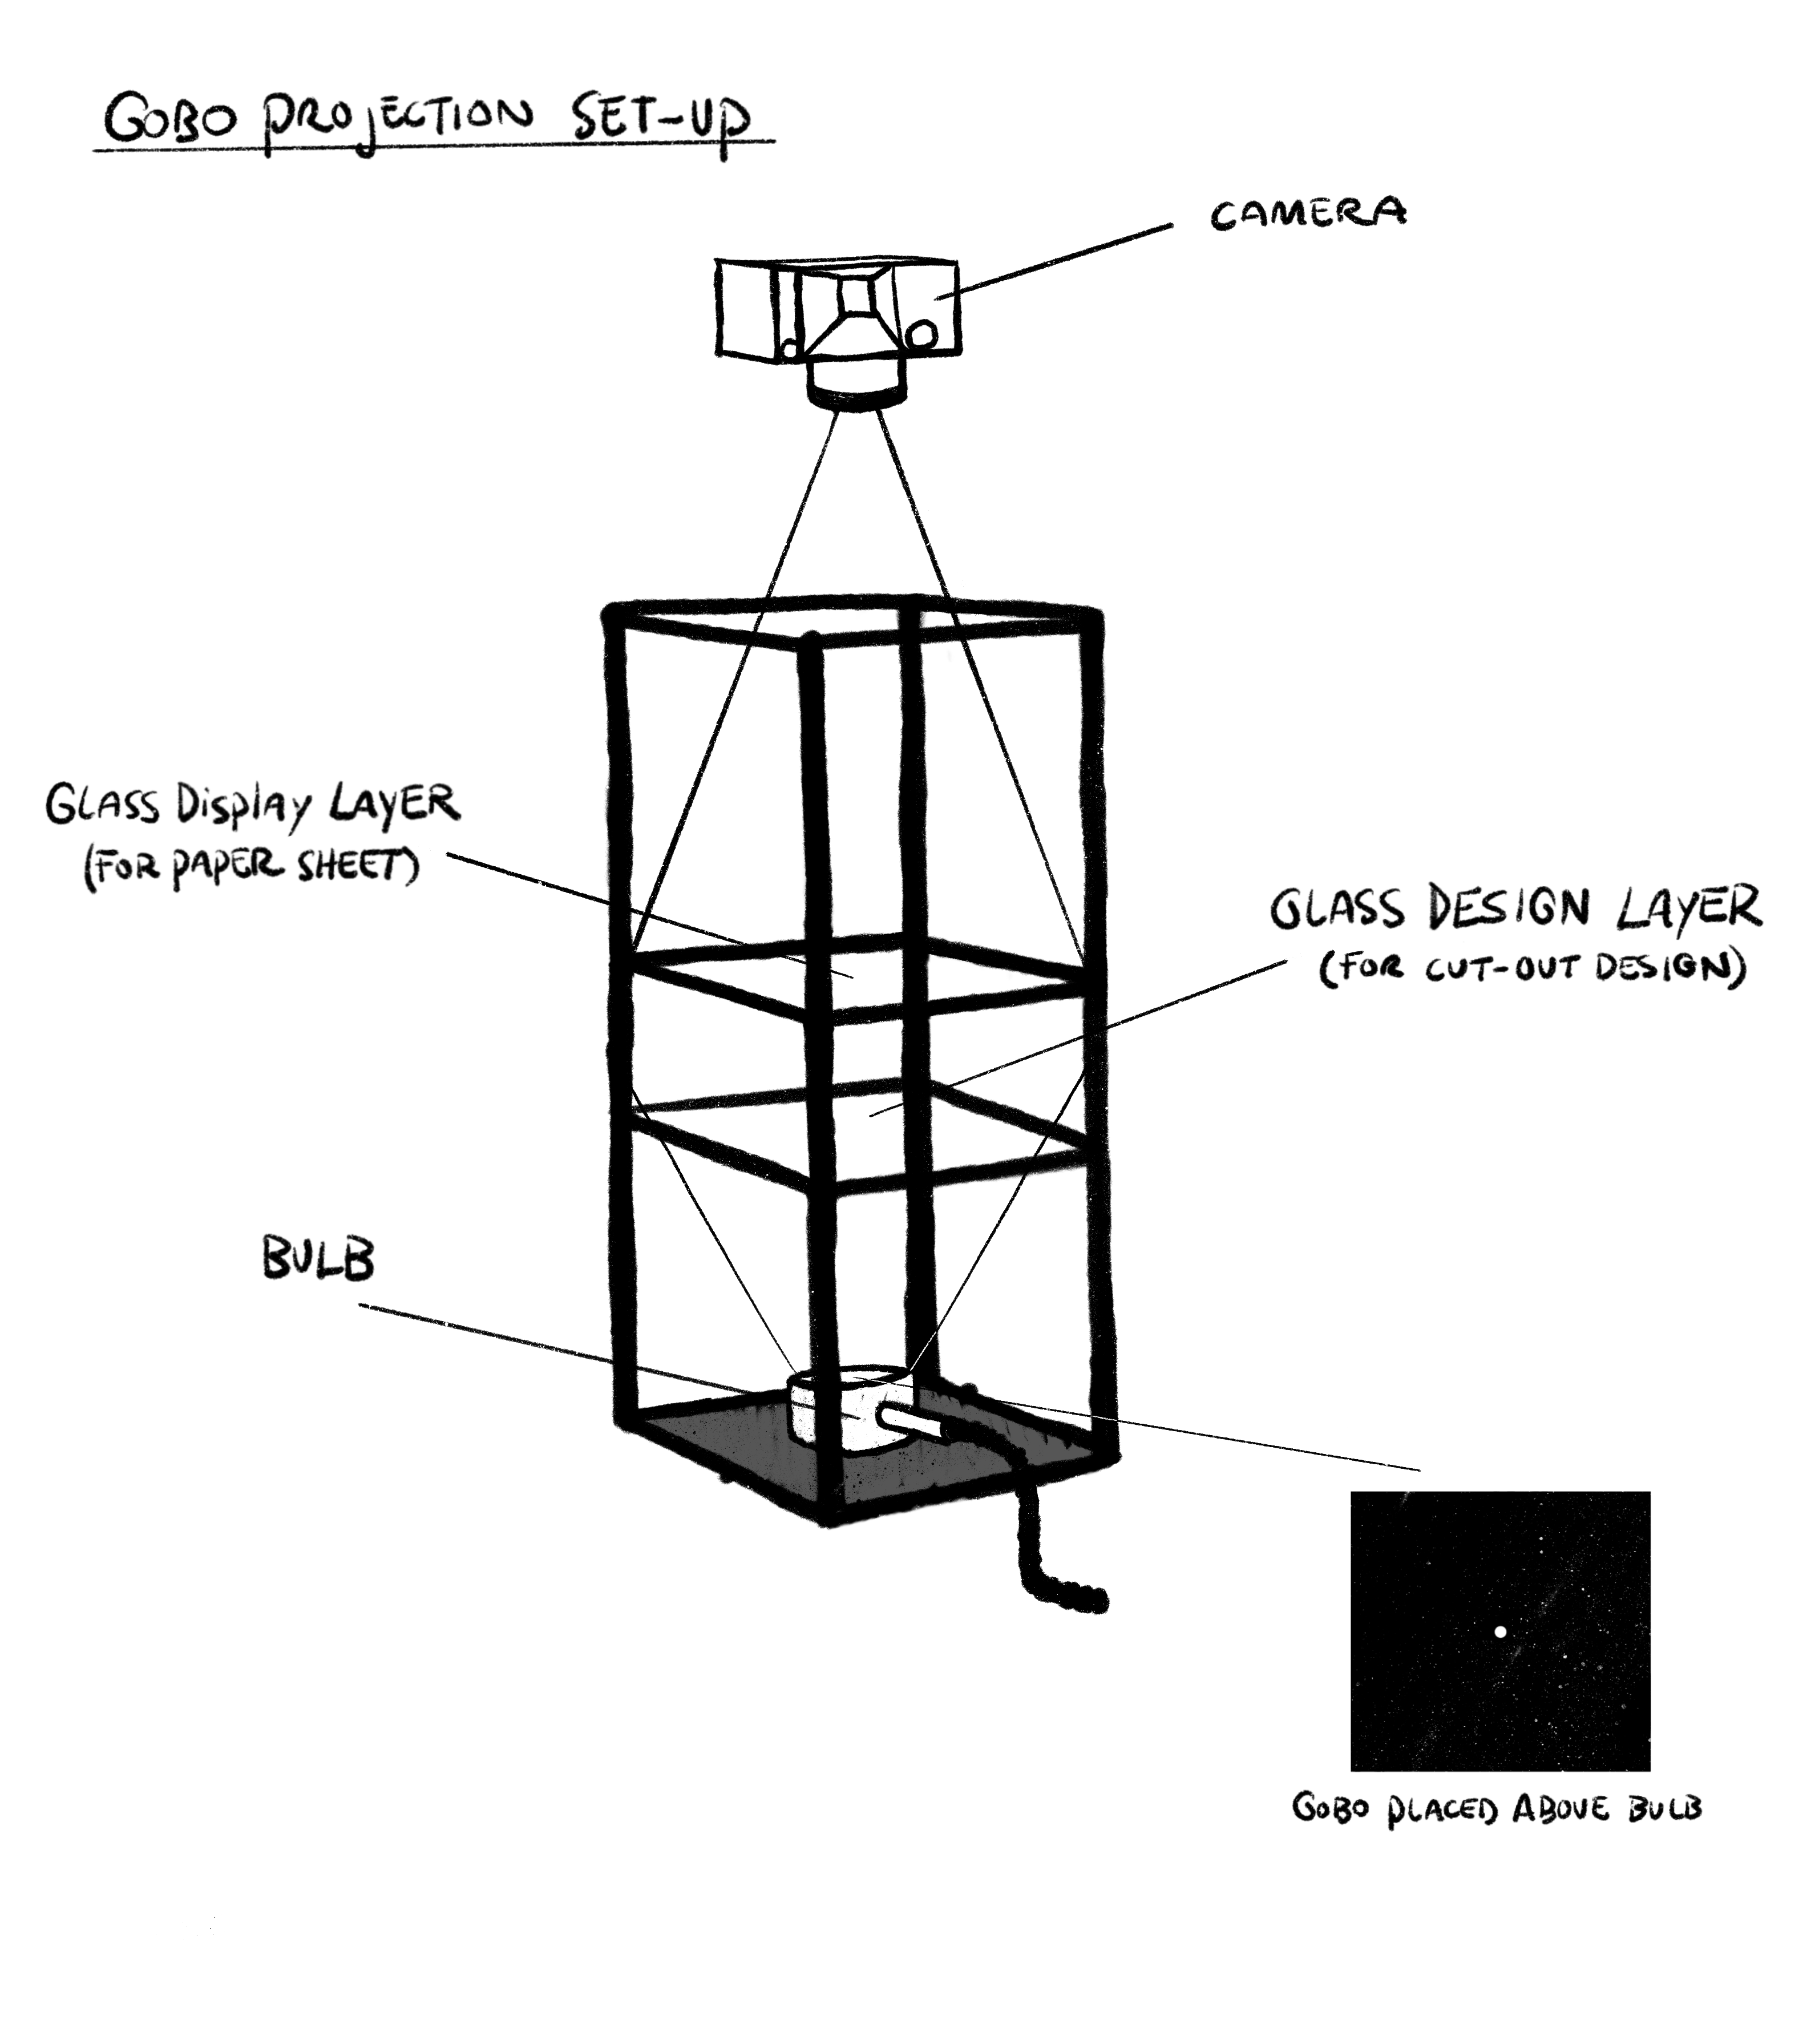 GOBO PROJECTION SET-UP
CAMERA
GLASS Display LAYER
(FOR PAPER SHEET)
GLASS DESIGN LAYER
(FOR CUT-OUT DESIGN)
BULB
GOBO PLACED ABOVE BULB